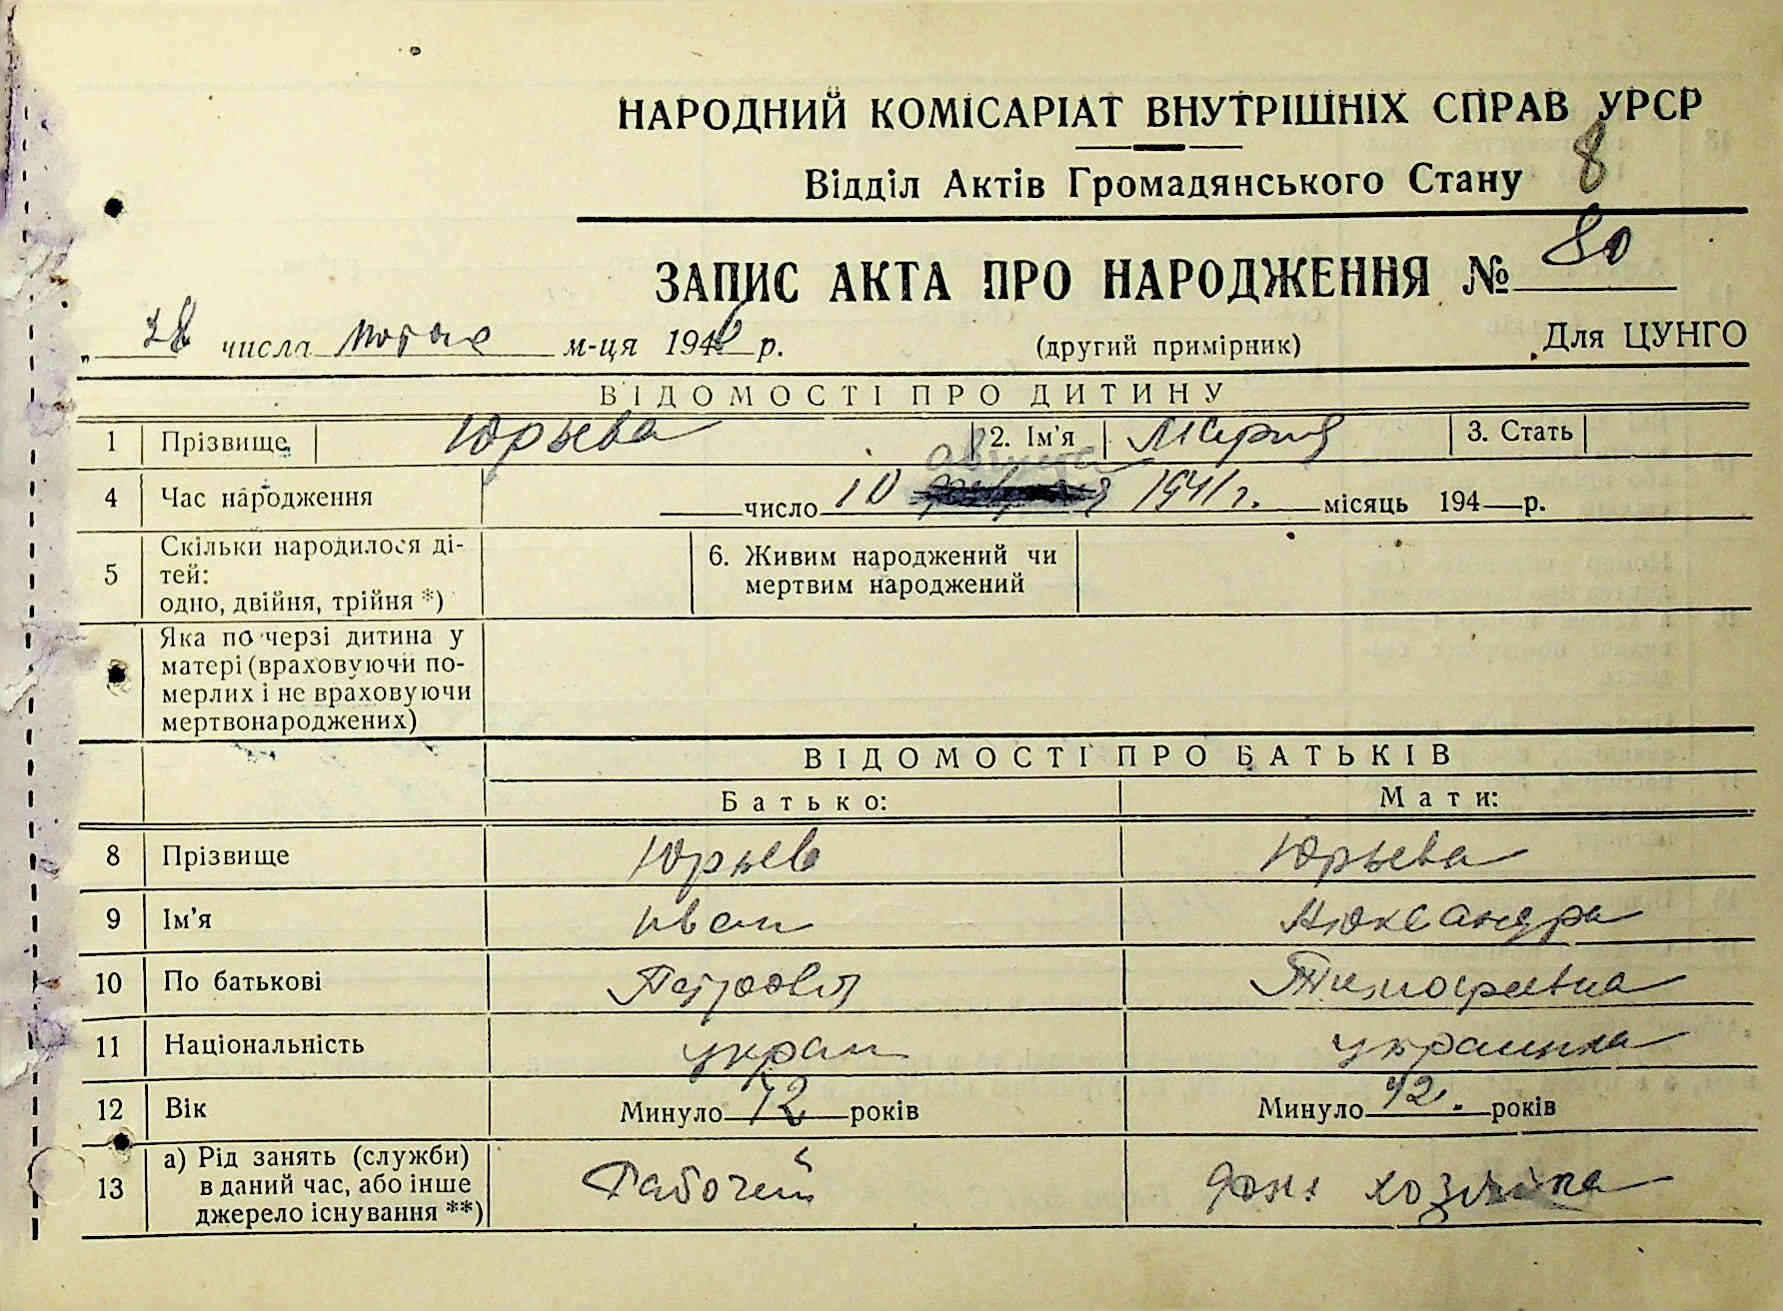 НАРОДНИЙ КОМІСАРІАТ ВНУТРІШНІХ СПРАВ УРСР
8
Відділ Актів Громадянського Стану
ЗАПИС АКТА ПРО НАРОДЖЕННЯ № 80
„ 28 числа м-ця 194 р. (другий примірник) Для ЦУНГО
ВІДОМОСТІ ПРО ДИТИНУ
1 Прізвище Юрьева 2. Ім'я Мария 3. Стать
августа
4 Час народження число 10 1941 г. місяць 194 р.
5 Скільки народилося ді-
тей:
одно, двійня, трійня *)
6. Живим народжений чи
мертвим народжений
Яка по черзі дитина у
матері (враховуючи по-
мерлих і не враховуючи
мертвонароджених)
ВІДОМОСТІ ПРО БАТЬКІВ
Батько: Мати:
8 Прізвище Юрьев Юрьева
9 Ім'я Иван Александра
10 По батькові Петрович Тимофеевна
11 Національність украин украинка
12 Вік Минуло 42 років Минуло 42. років
13 а) Рід занять (служби)
в даний час, або інше
джерело існування **)
Рабочий дом. хозяйка